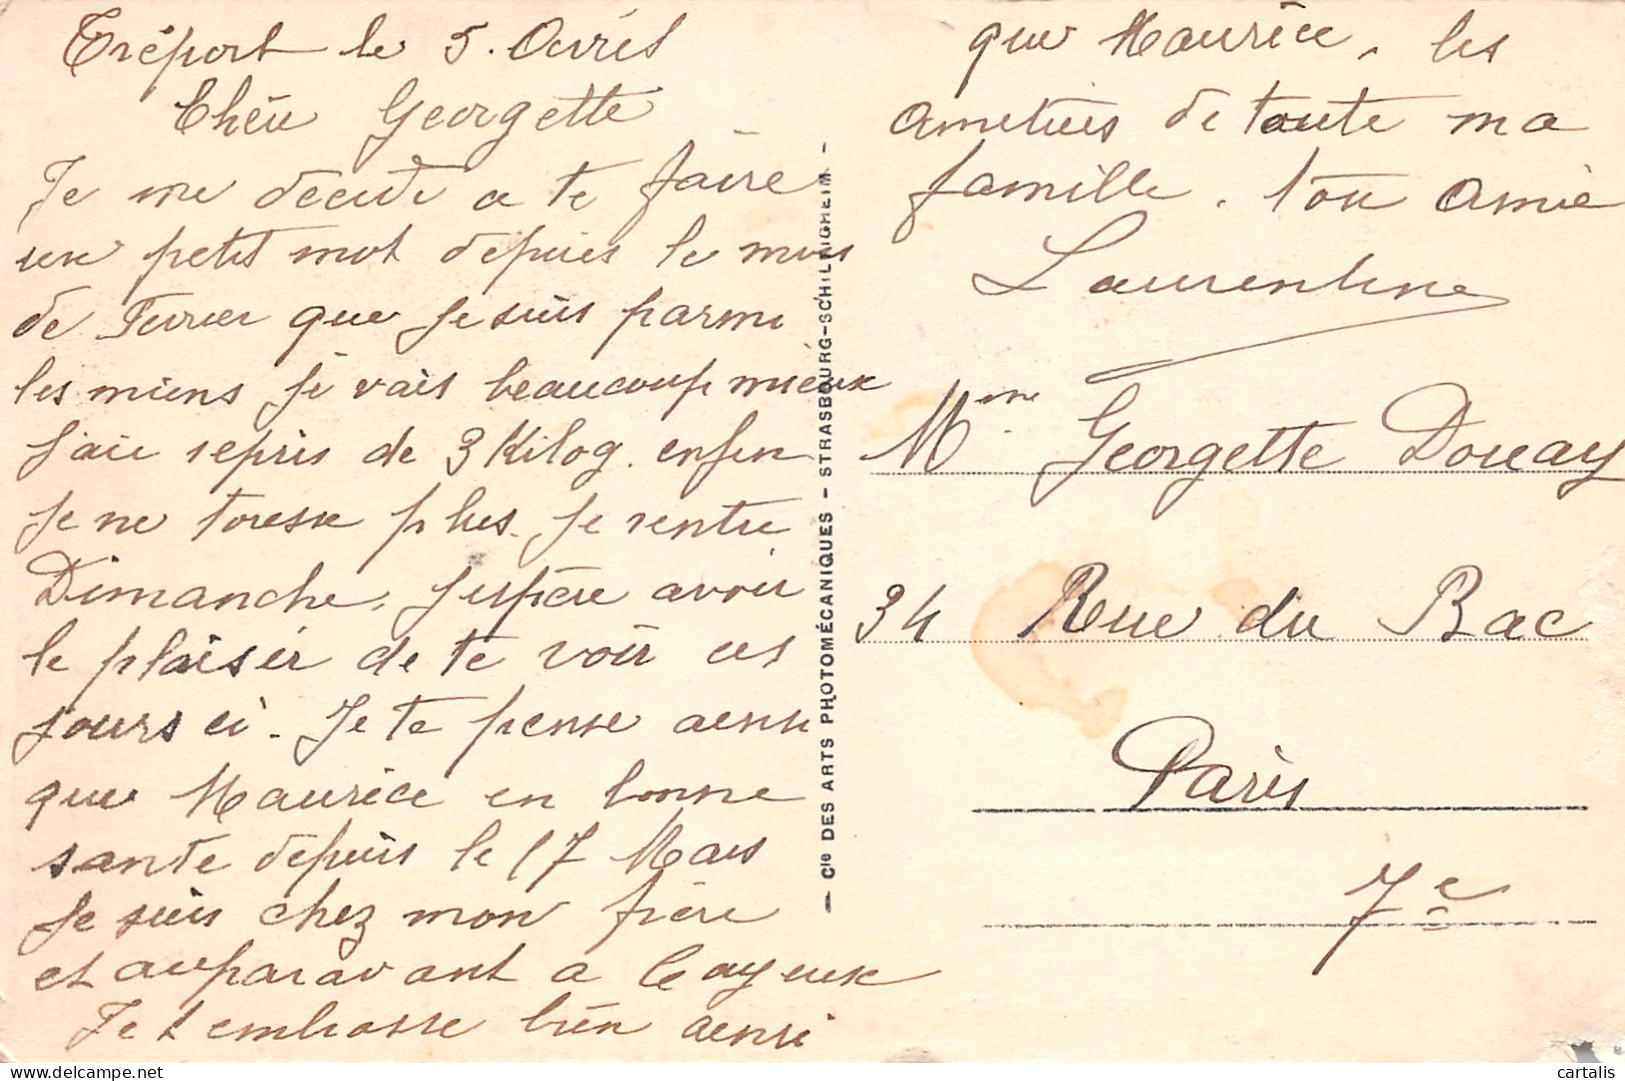 Tréport le 5. Avril
Chère Georgette
Je me décide a te faire
un petit mot depuis le mois
de Fevrier que je suis parmi
les miens je vais beaucoup mieux
j'aie repris de 3 Kilog. enfin
je ne tousse plus. je rentre
Dimanche, j'espère avoir
le plaisir de te voir ces
jours ci. Je te pense ainsi
que Maurice en bonne
sante depuis le 17 Mars
je suis chez mon frère
et auparavant a Cayeux
Je t embrasse bien ainsi
que Maurice, les
amitiés de toute ma
famille. Ton amie
Laurentine
Mme Georgette Douay
34 Rue du Bac
Paris
7e
— Cie DES ARTS PHOTOMÉCANIQUES - STRASBOURG-SCHILTIGHEIM —
cartalis
delcampe.net